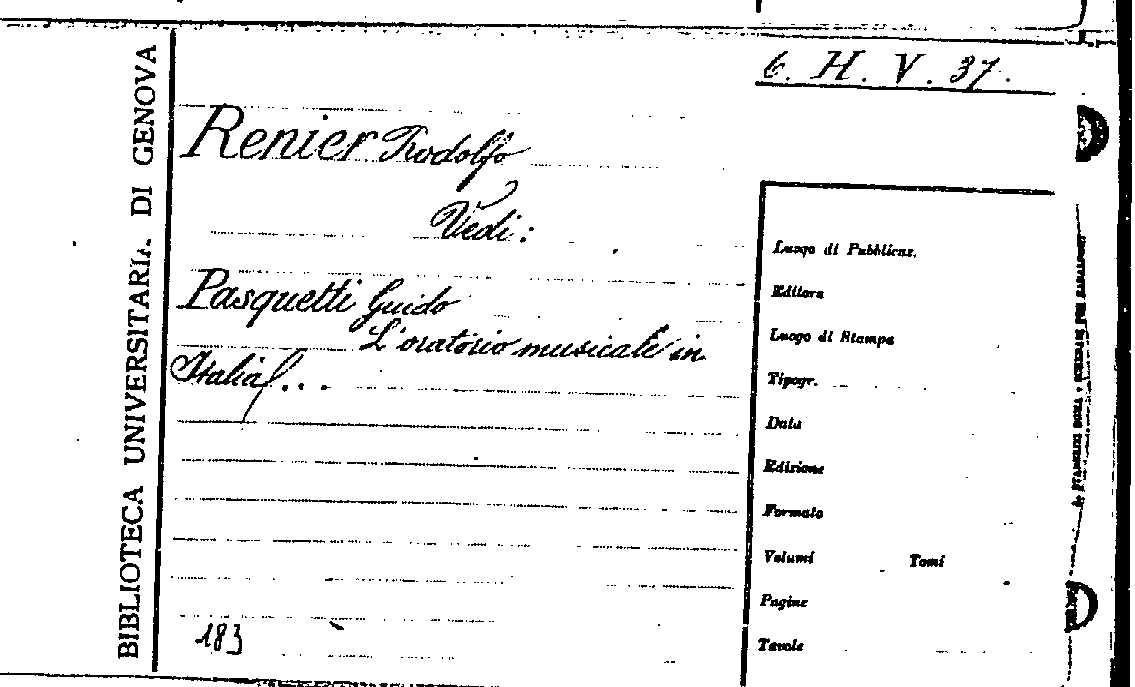 6. H. V. 37.
BIBLIOTECA UNIVERSITARIA DI GENOVA
Renier Rodolfo
Vedi:
Pasquetti Guido
L'oratorio musicale in
Italia...
183
Luogo di Pubblicaz.
Editore
Luogo di Stampa
Tipogr.
Data
Edizione
Formato
Volumi Tomi
Pagine
Tavole